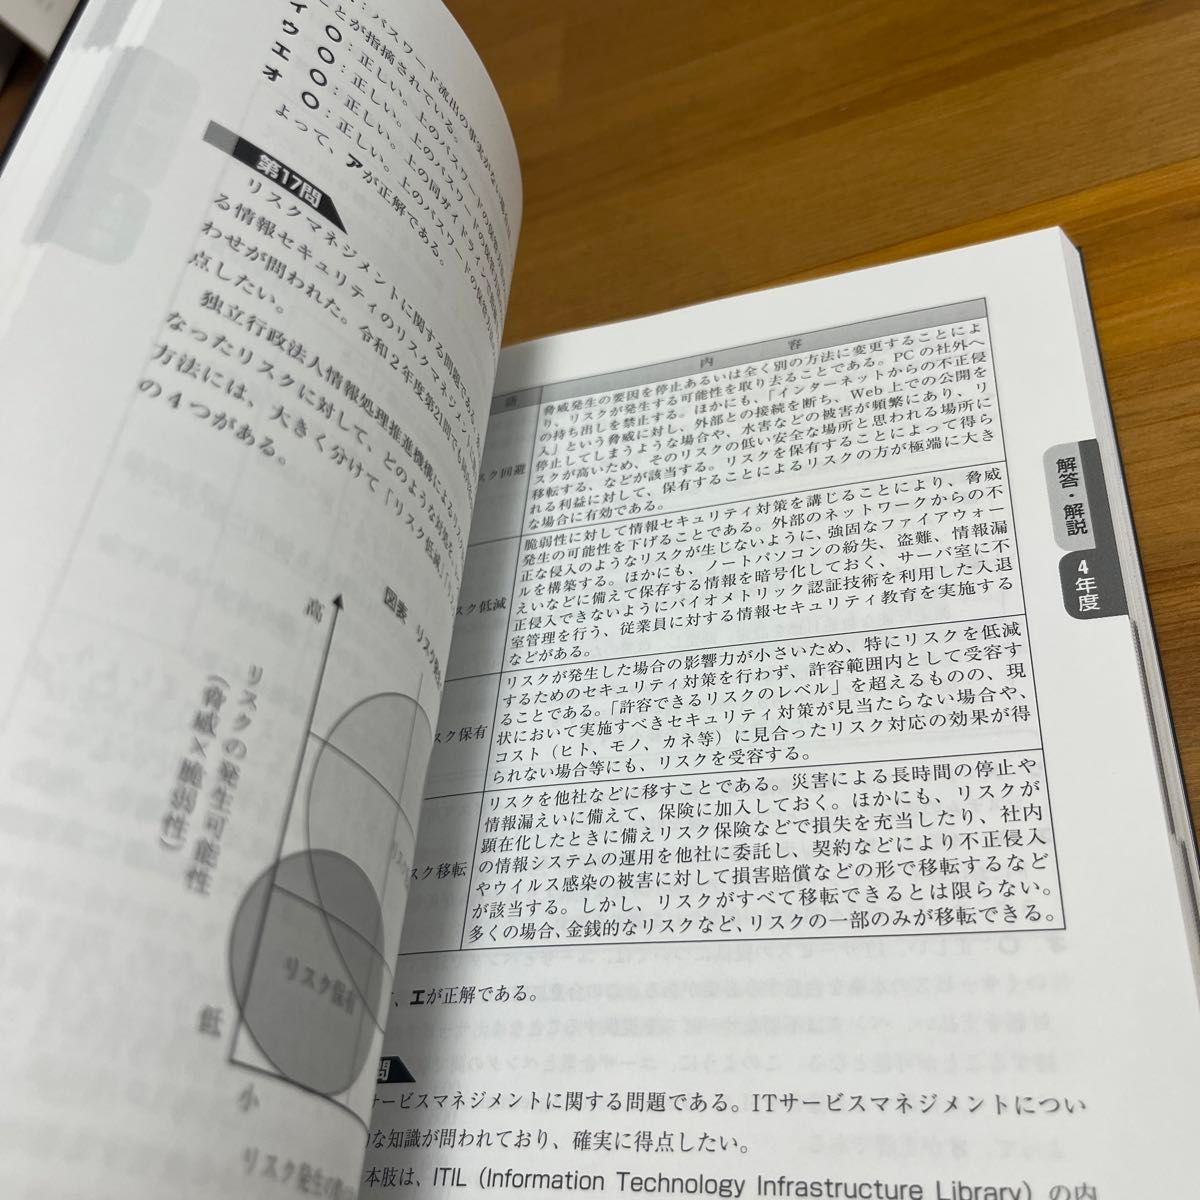 ：パスワード流出の事実がない場合
ことが指摘されている。
イ　〇：正しい。上のパスワードの
ウ　〇：正しい。上のパスワードの
エ　〇：正しい。上の同ガイドライン
オ　〇：正しい。上のパスワードの
よって、アが正解である。
第17問
リスクマネジメントに関する問題である。
る情報セキュリティのリスクマネジメント
わせが問われた。令和2年度第21問でも
点したい。
独立行政法人情報処理推進機構による
なったリスクに対して、どのような対処を、
方法には、大きく分けて「リスク低減」
の4つがある。
図表　リスク
高
リスクの発生可能性
（脅威×脆弱性）
リスク保有
低
小
リスク発生の
内　容
スク回避
脅威発生の要因を停止あるいは全く別の方法に変更することによ
り、リスクが発生する可能性を取り去ることである。PCの社外へ
の持ち出しを禁止する。ほかにも、「インターネットからの不正侵
入」という脅威に対し、外部との接続を断ち、Web上での公開を
停止してしまうような場合や、水害などの被害が頻繁にあり、リ
スクが高いため、そのリスクの低い安全な場所と思われる場所に
移転する、などが該当する。リスクを保有することによって得ら
れる利益に対して、保有することによるリスクの方が極端に大き
な場合に有効である。
スク低減
脆弱性に対して情報セキュリティ対策を講じることにより、脅威
発生の可能性を下げることである。外部のネットワークからの不
正な侵入のようなリスクが生じないように、強固なファイアウォー
ルを構築する。ほかにも、ノートパソコンの紛失、盗難、情報漏
えいなどに備えて保存する情報を暗号化しておく、サーバ室に不
正侵入できないようにバイオメトリック認証技術を利用した入退
室管理を行う、従業員に対する情報セキュリティ教育を実施する
などがある。
スク保有
リスクが発生した場合の影響力が小さいため、特にリスクを低減
するためのセキュリティ対策を行わず、許容範囲内として受容す
ることである。「許容できるリスクのレベル」を超えるものの、現
状において実施すべきセキュリティ対策が見当たらない場合や、
コスト（ヒト、モノ、カネ等）に見合ったリスク対応の効果が得
られない場合等にも、リスクを受容する。
スク移転
リスクを他社などに移すことである。災害による長時間の停止や
情報漏えいに備えて、保険に加入しておく。ほかにも、リスクが
顕在化したときに備えリスク保険などで損失を充当したり、社内
の情報システムの運用を他社に委託し、契約などにより不正侵入
やウイルス感染の被害に対して損害賠償などの形で移転するなど
が該当する。しかし、リスクがすべて移転できるとは限らない。
多くの場合、金銭的なリスクなど、リスクの一部のみが移転できる。
、エが正解である。
問
ービスマネジメントに関する問題である。ITサービスマネジメントについ
な知識が問われており、確実に得点したい。
本肢は、ITIL（Information Technology Infrastructure Library）の内
解答・解説
4年度